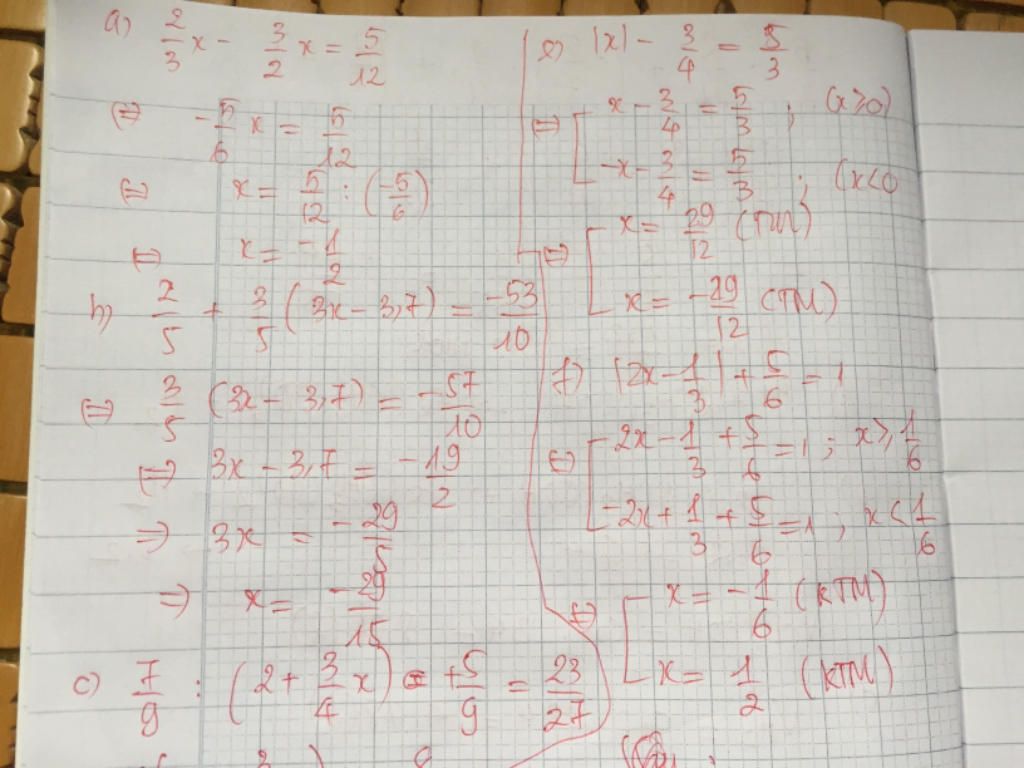 a) 2/3 x - 3/2 x = 5/12
⇔ -5/6 x = 5/12
⇔ x = 5/12 : (-5/6)
⇔ x = -1/2
b) 2/5 + 3/5 (3x - 3,7) = -53/10
⇔ 3/5 (3x - 3,7) = -57/10
⇔ 3x - 3,7 = -19/2
⇒ 3x = -29/5
⇒ x = -29/15
c) 7/9 : (2 + 3/4 x) + 5/9 = 23/27
e) |x| - 3/4 = 5/3
⇔ [ x - 3/4 = 5/3 ; (x ≥ 0)
-x - 3/4 = 5/3 ; (x < 0
⇔ [ x = 29/12 (TM)
x = -29/12 (TM)
f) |2x - 1/3| + 5/6 = 1
⇔ [ 2x - 1/3 + 5/6 = 1 ; x ≥ 1/6
-2x + 1/3 + 5/6 = 1 ; x < 1/6
⇔ [ x = -1/6 (KTM)
x = 1/2 (KTM)